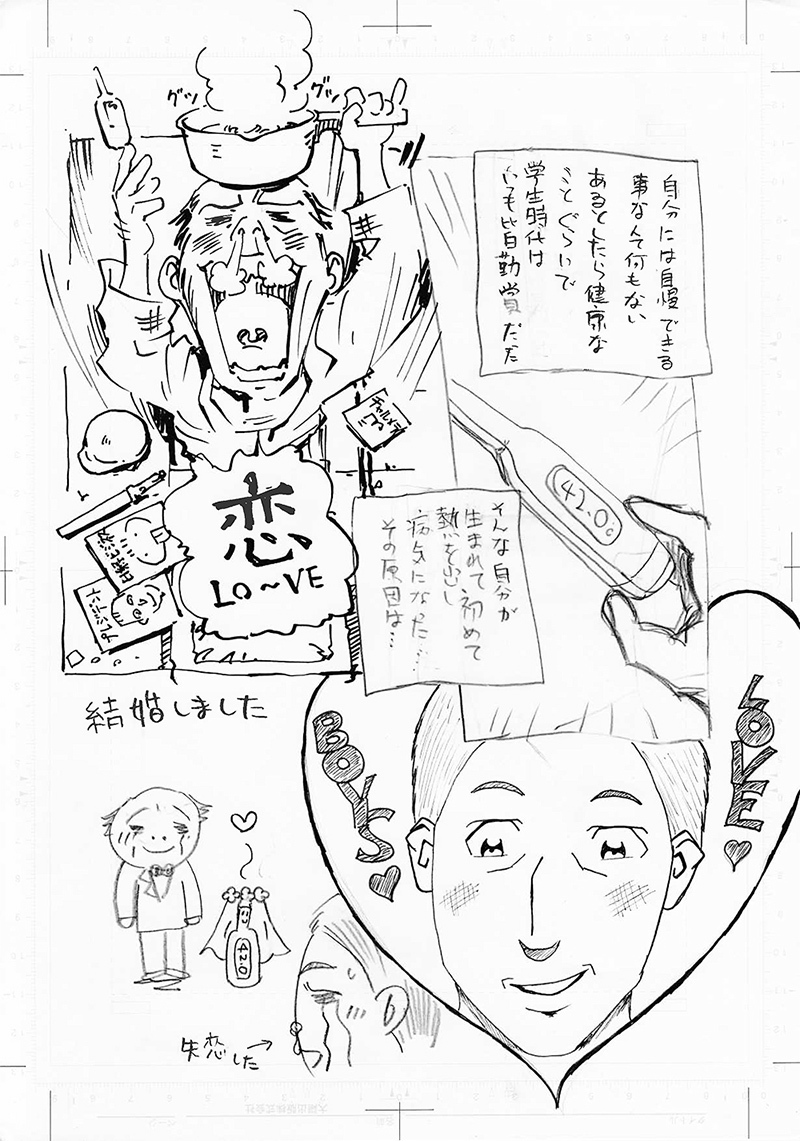 自分には自慢できる
事なんて何もない
あるとしたら健康な
ことぐらいで
学生時代は
いつも皆勤賞だった
グッ
グッ
42.0℃
そんな自分が
生まれて初めて
熱を出し
病気になった…
その原因は…
恋
LO~VE
プレジデント
結婚しました
BOYS
LOVE
42.0
失恋した→